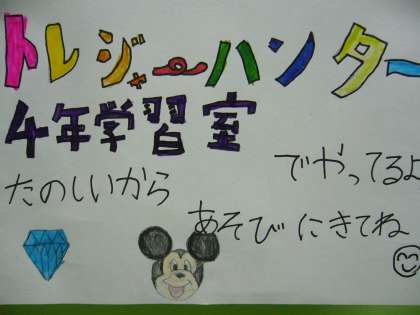 トレジャーハンター
4年学習室
でやってるよ
たのしいから
あそびにきてね